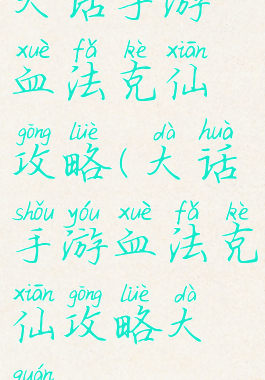 大话手游
xuè fǎ kè xiān
血法克仙
gōng lüè dà huà
攻略(大话
shǒu yóu xuè fǎ kè
手游血法克
xiān gōng lüè dà
仙攻略大
quán